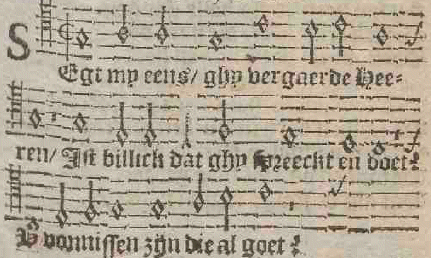 SEgt my eens/ ghy vergaerde Hee-
ren/ Ist billick dat ghy spreeckt en doet?
V vonnissen zijn die al goet?